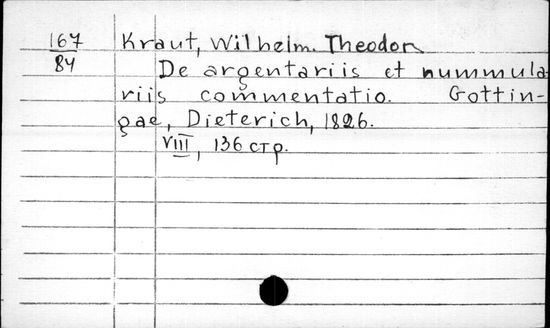 167
84
Kraut, Wilhelm Theodor
De argentariis et nummula-
riis commentatio. Gottin-
gae, Dieterich, 1826.
VIII, 136 стр.